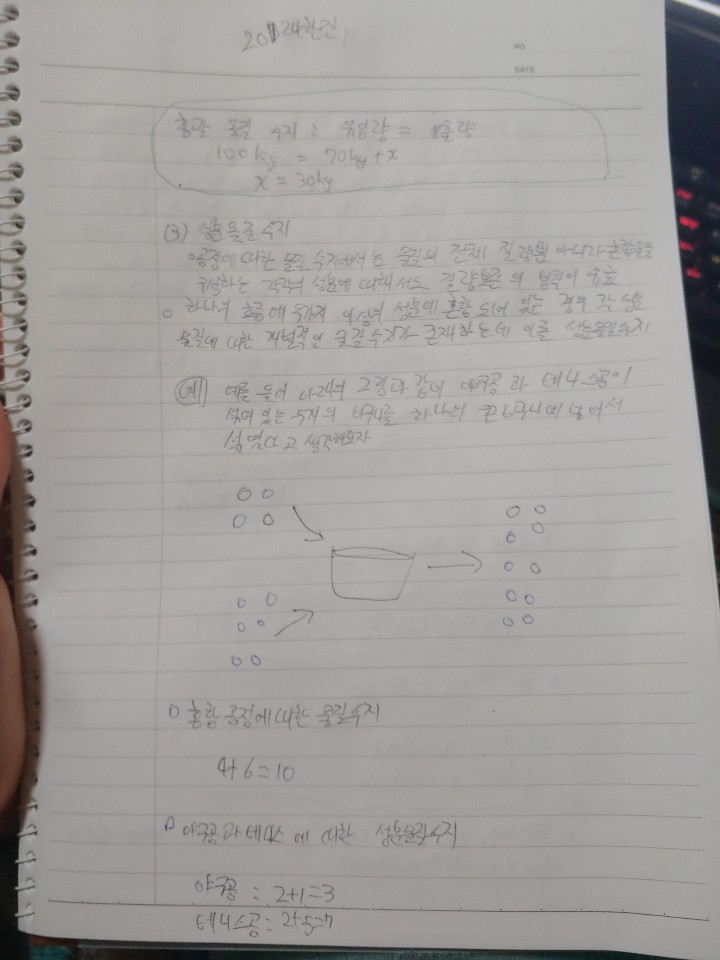 NO.
DATE
총괄 물질 수지 : 유입량 = 유출량
100kg = 70kg + x
x = 30kg
(3) 성분물질수지
공정에 대한 물질 수지에서는 물질의 전체 질량뿐 아니라 혼합물을
구성하는 각각의 성분에 대해서도 질량보존의 법칙이 유효
○ 하나의 흐름에 두가지 이상의 성분이 혼합 되어 있는 경우 각 성분
물질에 대한 개별적인 물질수지가 존재하는데 이를 성분물질수지
예) 예를 들어 아래의 그림과 같이 야구공과 테니스공이
섞여 있는 두개의 바구니를 하나의 큰 바구니에 넣어서
섞는다고 생각해보자
혼합공정에 대한 물질수지
4+6=10
야구공과 테니스에 대한 성분물질수지
야구공 : 2+1=3
테니스공 : 2+5=7